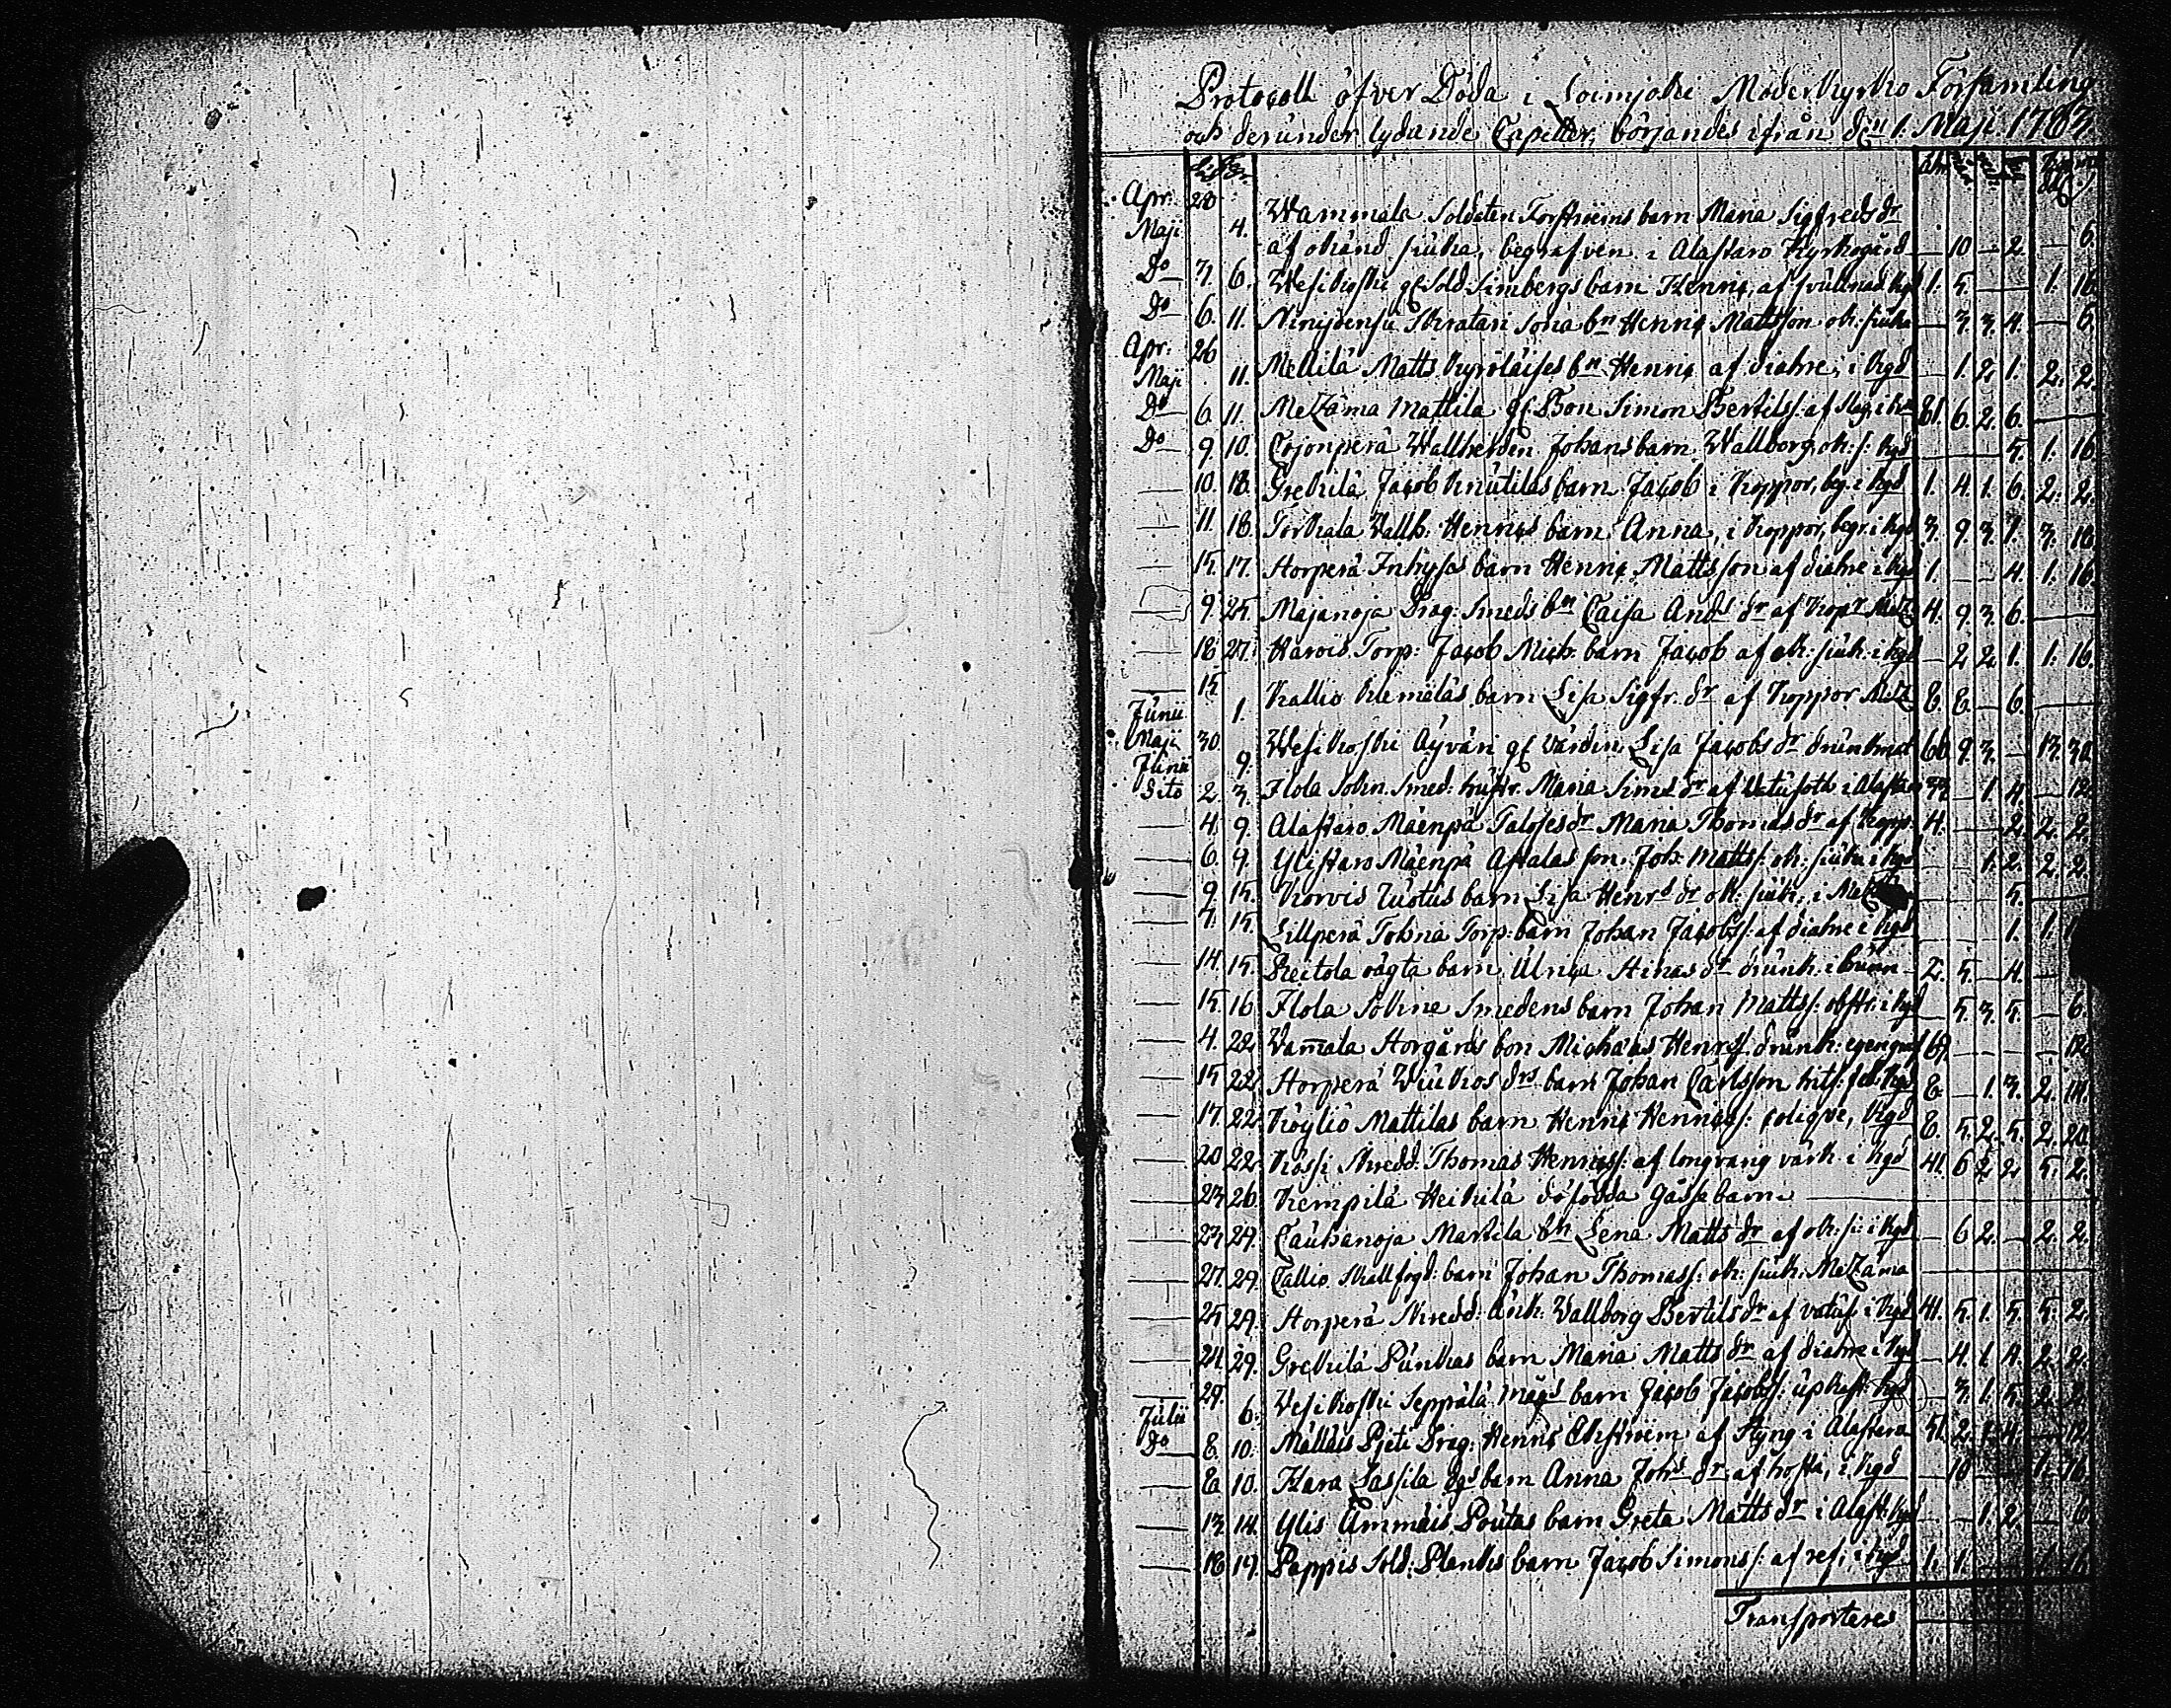 Protocoll öfver Döda i Loimjoki Moderkyrko Församling
och derunder lydande Capeller, börjandes ifrån den 1. Maji 1783
Apr: 28 Wammala Soldaten Forsströms barn Maria Sigfreds dr
Maji 4. af okänd siuka, begrafven i Alastaro Kyrkogård — 10 — 2. — 6.
Do 3. 6. Wesikoski gl Sold. Simbergs barn Henric, af svullnad kgd 1. 5. — — 1. 16
Do 6. 11. Niinijoensu Skratari Sona bn Henric Mattsson ok: siuka — 3. 3. 4. — 6.
Apr: 26
Maji 11. Mellilä Matts Kyröläises bn Henric af diahre, i kgd — 1. 2. 1. 2. 2.
Do 6. 11. Metzäma Mattila gl Bon Simon Bertilss: af slag, i 81. 6. 2. 6. — —
Do 9. 10. Cojonperä Wallherden Johans barn Wallborg, ok: s: kgd — — — 5. 1. 16
— 10. 18. Grekilä Jacob Knutilas barn Jacob i Koppor, beg. i kgd 1. 4. 1. 6. 2. 2.
— 11. 18. Torkala Wallh: Henrics barn Anna, i Koppor, begr. i kgd 3. 9. 3. 1. 3. 18.
— 15. 17. Storperä Inhyses barn Henric Mattsson af diahre i kgd 1. — — 4. 1. 16
— 9. 25. Majanoja Drag. Smeds bn Caisa Ands dr af Kopr Metz 4. 9. 3. 6. — —
— 18 27. Harois Torp: Jacob Mich: barn Jacob af ok: siuk: i kgd — 2. 2. 1. 1. 16.
— 15.
Junii 1. Kallio Klemäläs barn Lisa Sigfr. dr af Koppor Metz 8. 8. — 6. — —
Maji 30.
Junii 9. Wesikoski Äyväri gl värdin: Lisa Jacobs dr drunknat 60. 9. 3. — 13. 30.
Dito 2. 3. Flola Sokn. Smed: hustr. Maria Sims dr af Watusoth i Alastaro 33. — 1. 4. — 12.
— 4. 9. Alastaro Mäenpä Taloses dr Maria Thomas dr af Kopp. 4. — — 2. 2. 2.
— 6. 9. Ylistaro Mäenpä Astalas son. Joh: Matts s: ok: siuka i kgd — — 1. 2. 2. 2.
— 9. 15. Korvis Tuotus barn Lisa Henrs dr ok: siuk: i Met — — — 5. —
— 7. 15. Lillperä Tohna Torp: barn Johan Jacobss: af diahre i kgd — — — 1. 1.
— 14. 15. Peitola vägta barn Ulrica Stinas dr drunk: i brunn 2. 5. — 4. —
— 15. 16. Flola Sokne Smedens barn Johan Mattss: obstr: i kgd — 5. 3. 5. — 6.
— 4. 22. Wamala Storgårds bon Michaels Henrss drunk: egen graf 69. — — — — 12.
— 15. 22. Storperä Wiukos drs barn Johan Carlsson hits: feb: kgd 8. — 1. 3. 2. 14.
— 17. 22. Köyliö Mattilas barn Henric Henricss: colique, kgd 8. 5. 2. 5. 2. 20.
— 20. 22. Kössi Skredd. Thomas Henricss: af longvarig värk i kgd 41. 6. 2. 2. 5. 2.
— 23. 26. Kiempilä Heikilä dödfödda Gåsse barn —
— 23. 29. Cauhanoja Markila bn Lena Matts dr af ok: si: i kgd — 6. 2. — 2. 2.
— 27. 29. Callio Skallfogd: barn Johan Thomass: ok: siuk: Metzäma
— 25. 29. Storperä Skredd: änk: Wallborg Bertils dr af vatus: i kgd 41. 5. 1. 5. 5. 2.
— 24. 29. Grekilä Punkas barn Maria Matts dr af diahre i kgd — 4. 1. 4. 2. 2.
— 29.
Julii 6. Wesikoski Seppälä mågs barn Jacob Jacobss: upkast: kgd — 3. 1. 5. 2. 2.
Do 8. 10. Mälläis Pjeti Drag: Henric Ekström af Styng i Alastaro 51. 2. 4. — 12.
— 8. 10. Hara Lassila dgs barn Anna Johs dr af hosta, i kgd — 10 — — 1. 16.
— 13. 14. Ylis Ämmäis Poutas barn Greta Matts dr i Alast: kgd — — 1. 2. — 6.
— 18 19. Pappis Sold: Planks barn Jacob Simonss: af ref: i kgd 1. 1. — — 1. 16.
Transporteres